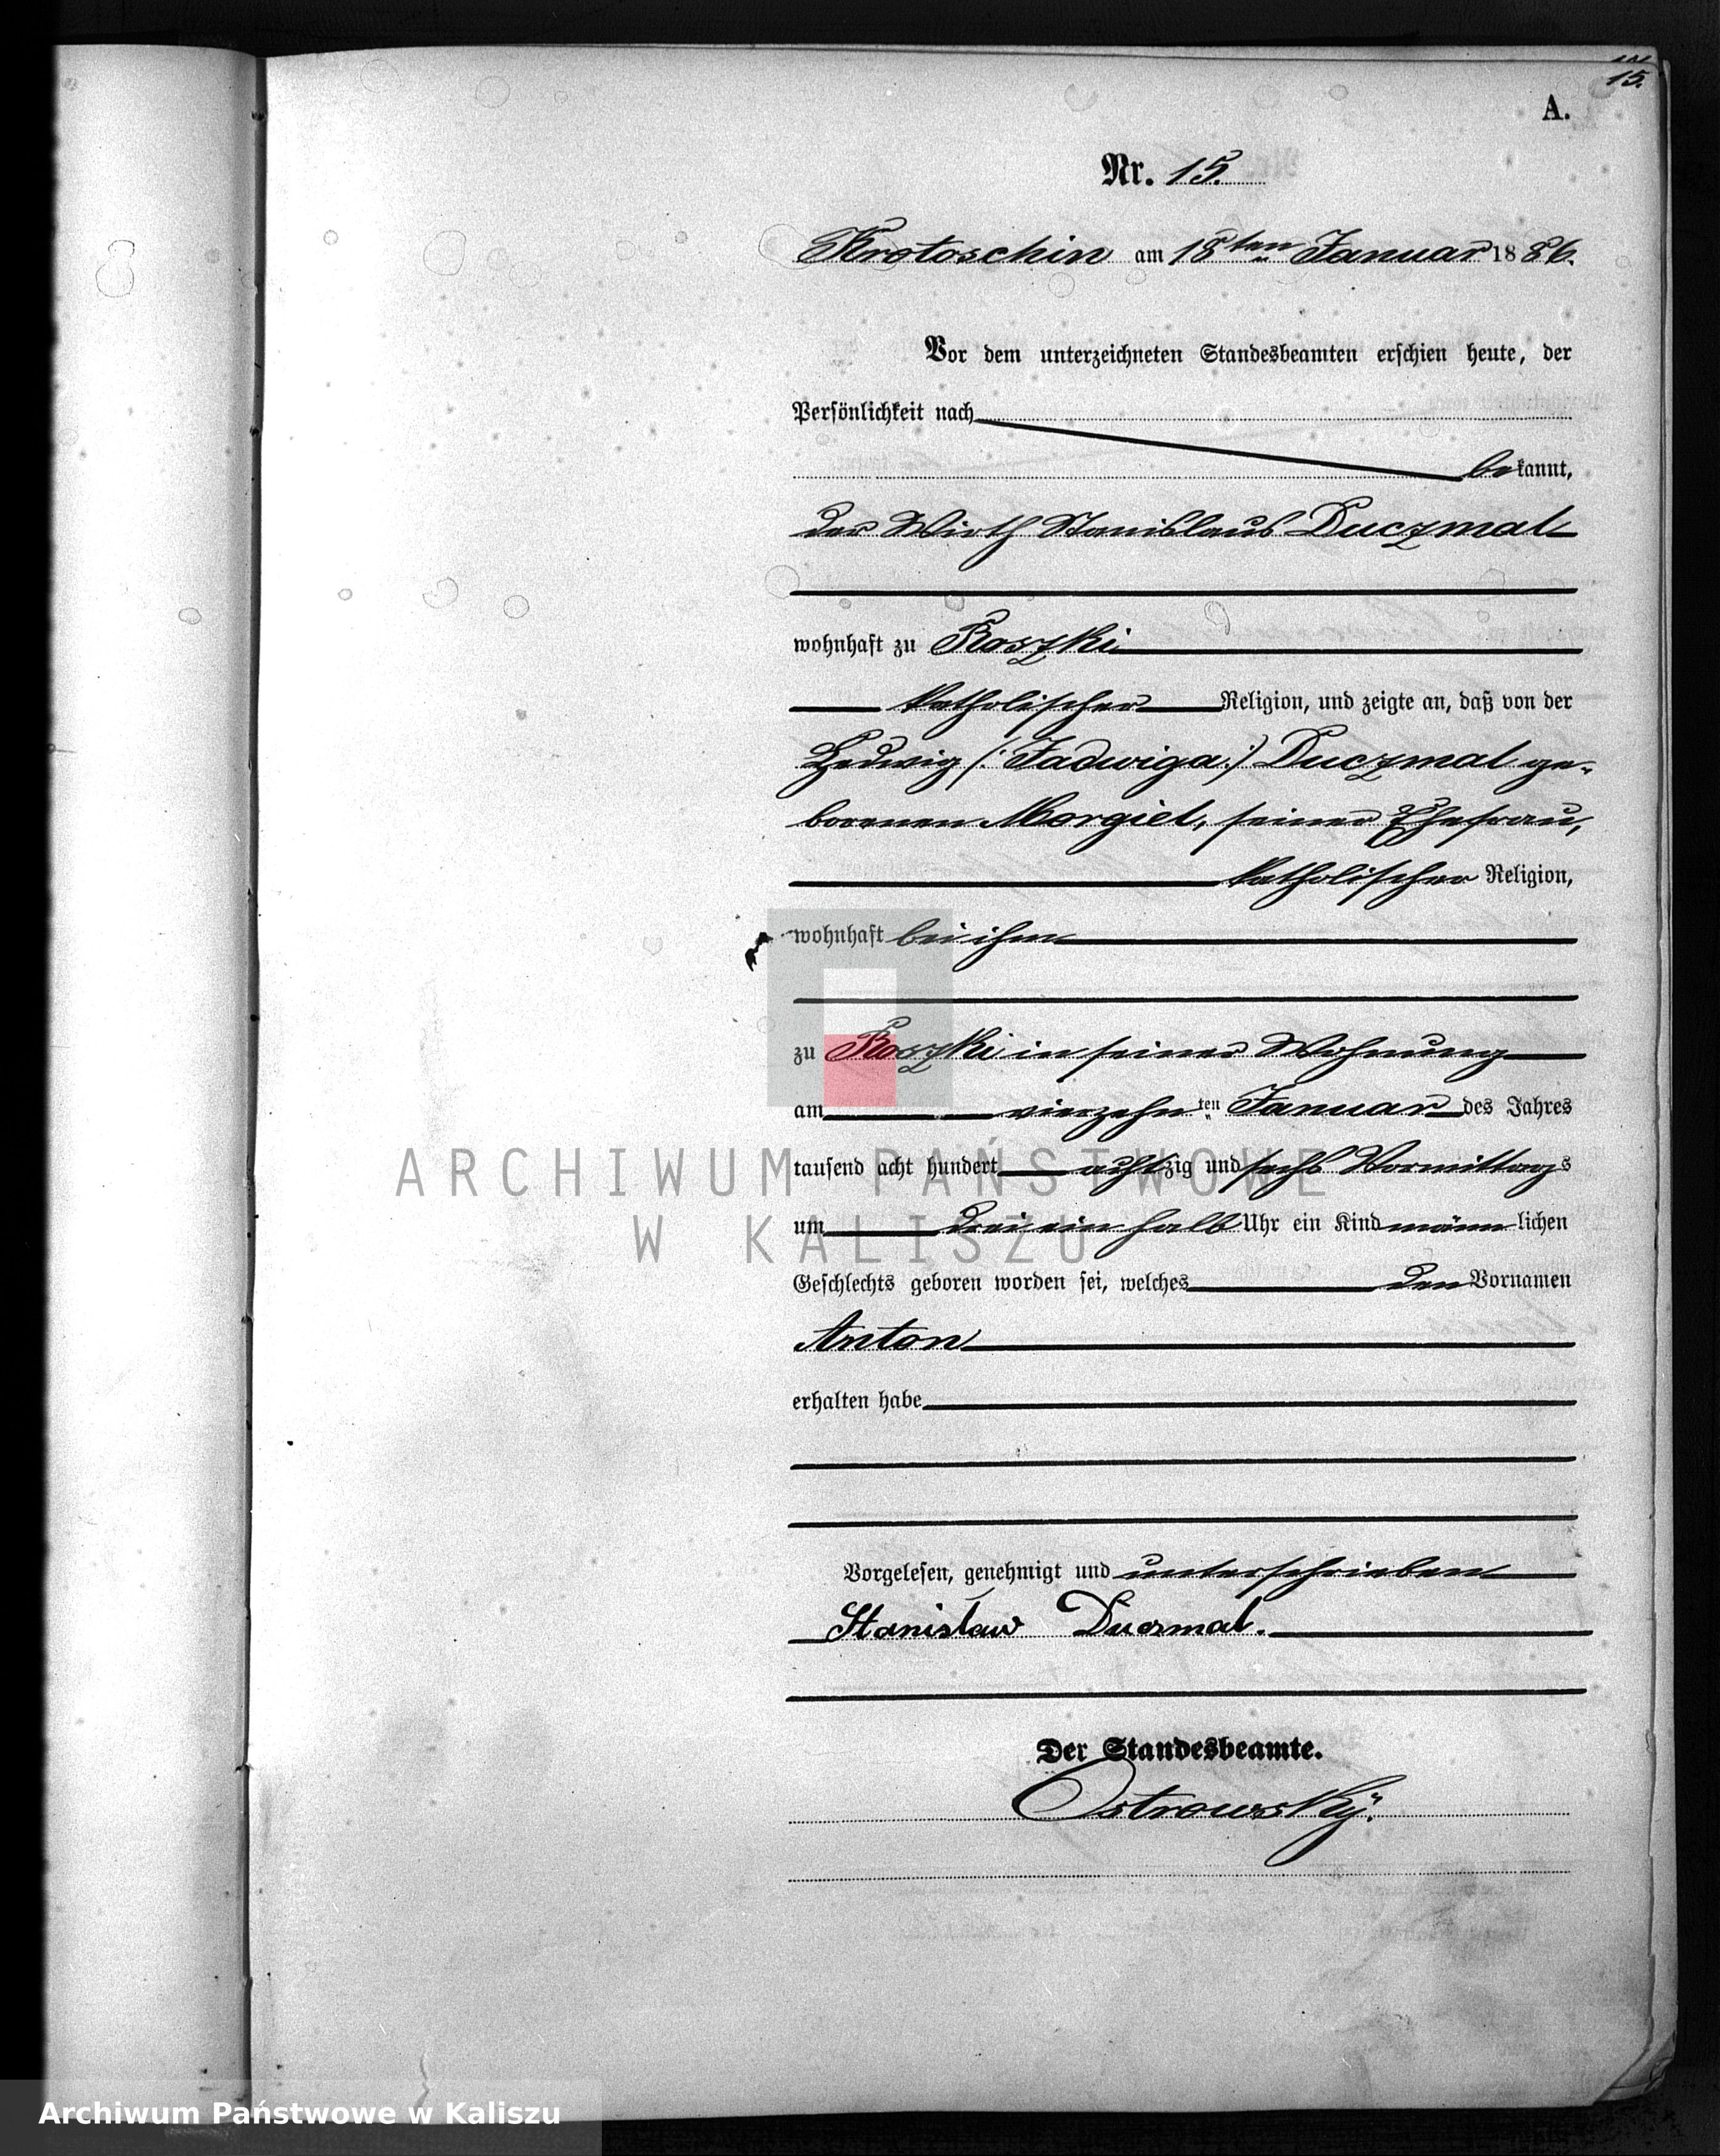 15.
A.
Nr. 15.
Krotoschin am 18ten Januar 1886.
Vor dem unterzeichneten Standesbeamten erschien heute, der
Persönlichkeit nach
bekannt,
der Wirth Stanislaus Duczmal
wohnhaft zu Roszki
katholischer Religion, und zeigte an, daß von der
Hedwig (: Jadwiga :) Duczmal ge-
borenen Morgiel, seiner Ehefrau,
katholischer Religion,
wohnhaft bei ihm
zu Roszki in seiner Wohnung
am vierzehnten Januar des Jahres
tausend acht hundert achtzig und sechs Vormittags
um drei ein halb Uhr ein Kind männlichen
Geschlechts geboren worden sei, welches den Vornamen
Anton
erhalten habe
Vorgelesen, genehmigt und unterschrieben
Stanisław Duczmal.
Der Standesbeamte.
Ostrowsky.
ARCHIWUM PAŃSTWOWE
W KALISZU
Archiwum Państwowe w Kaliszu